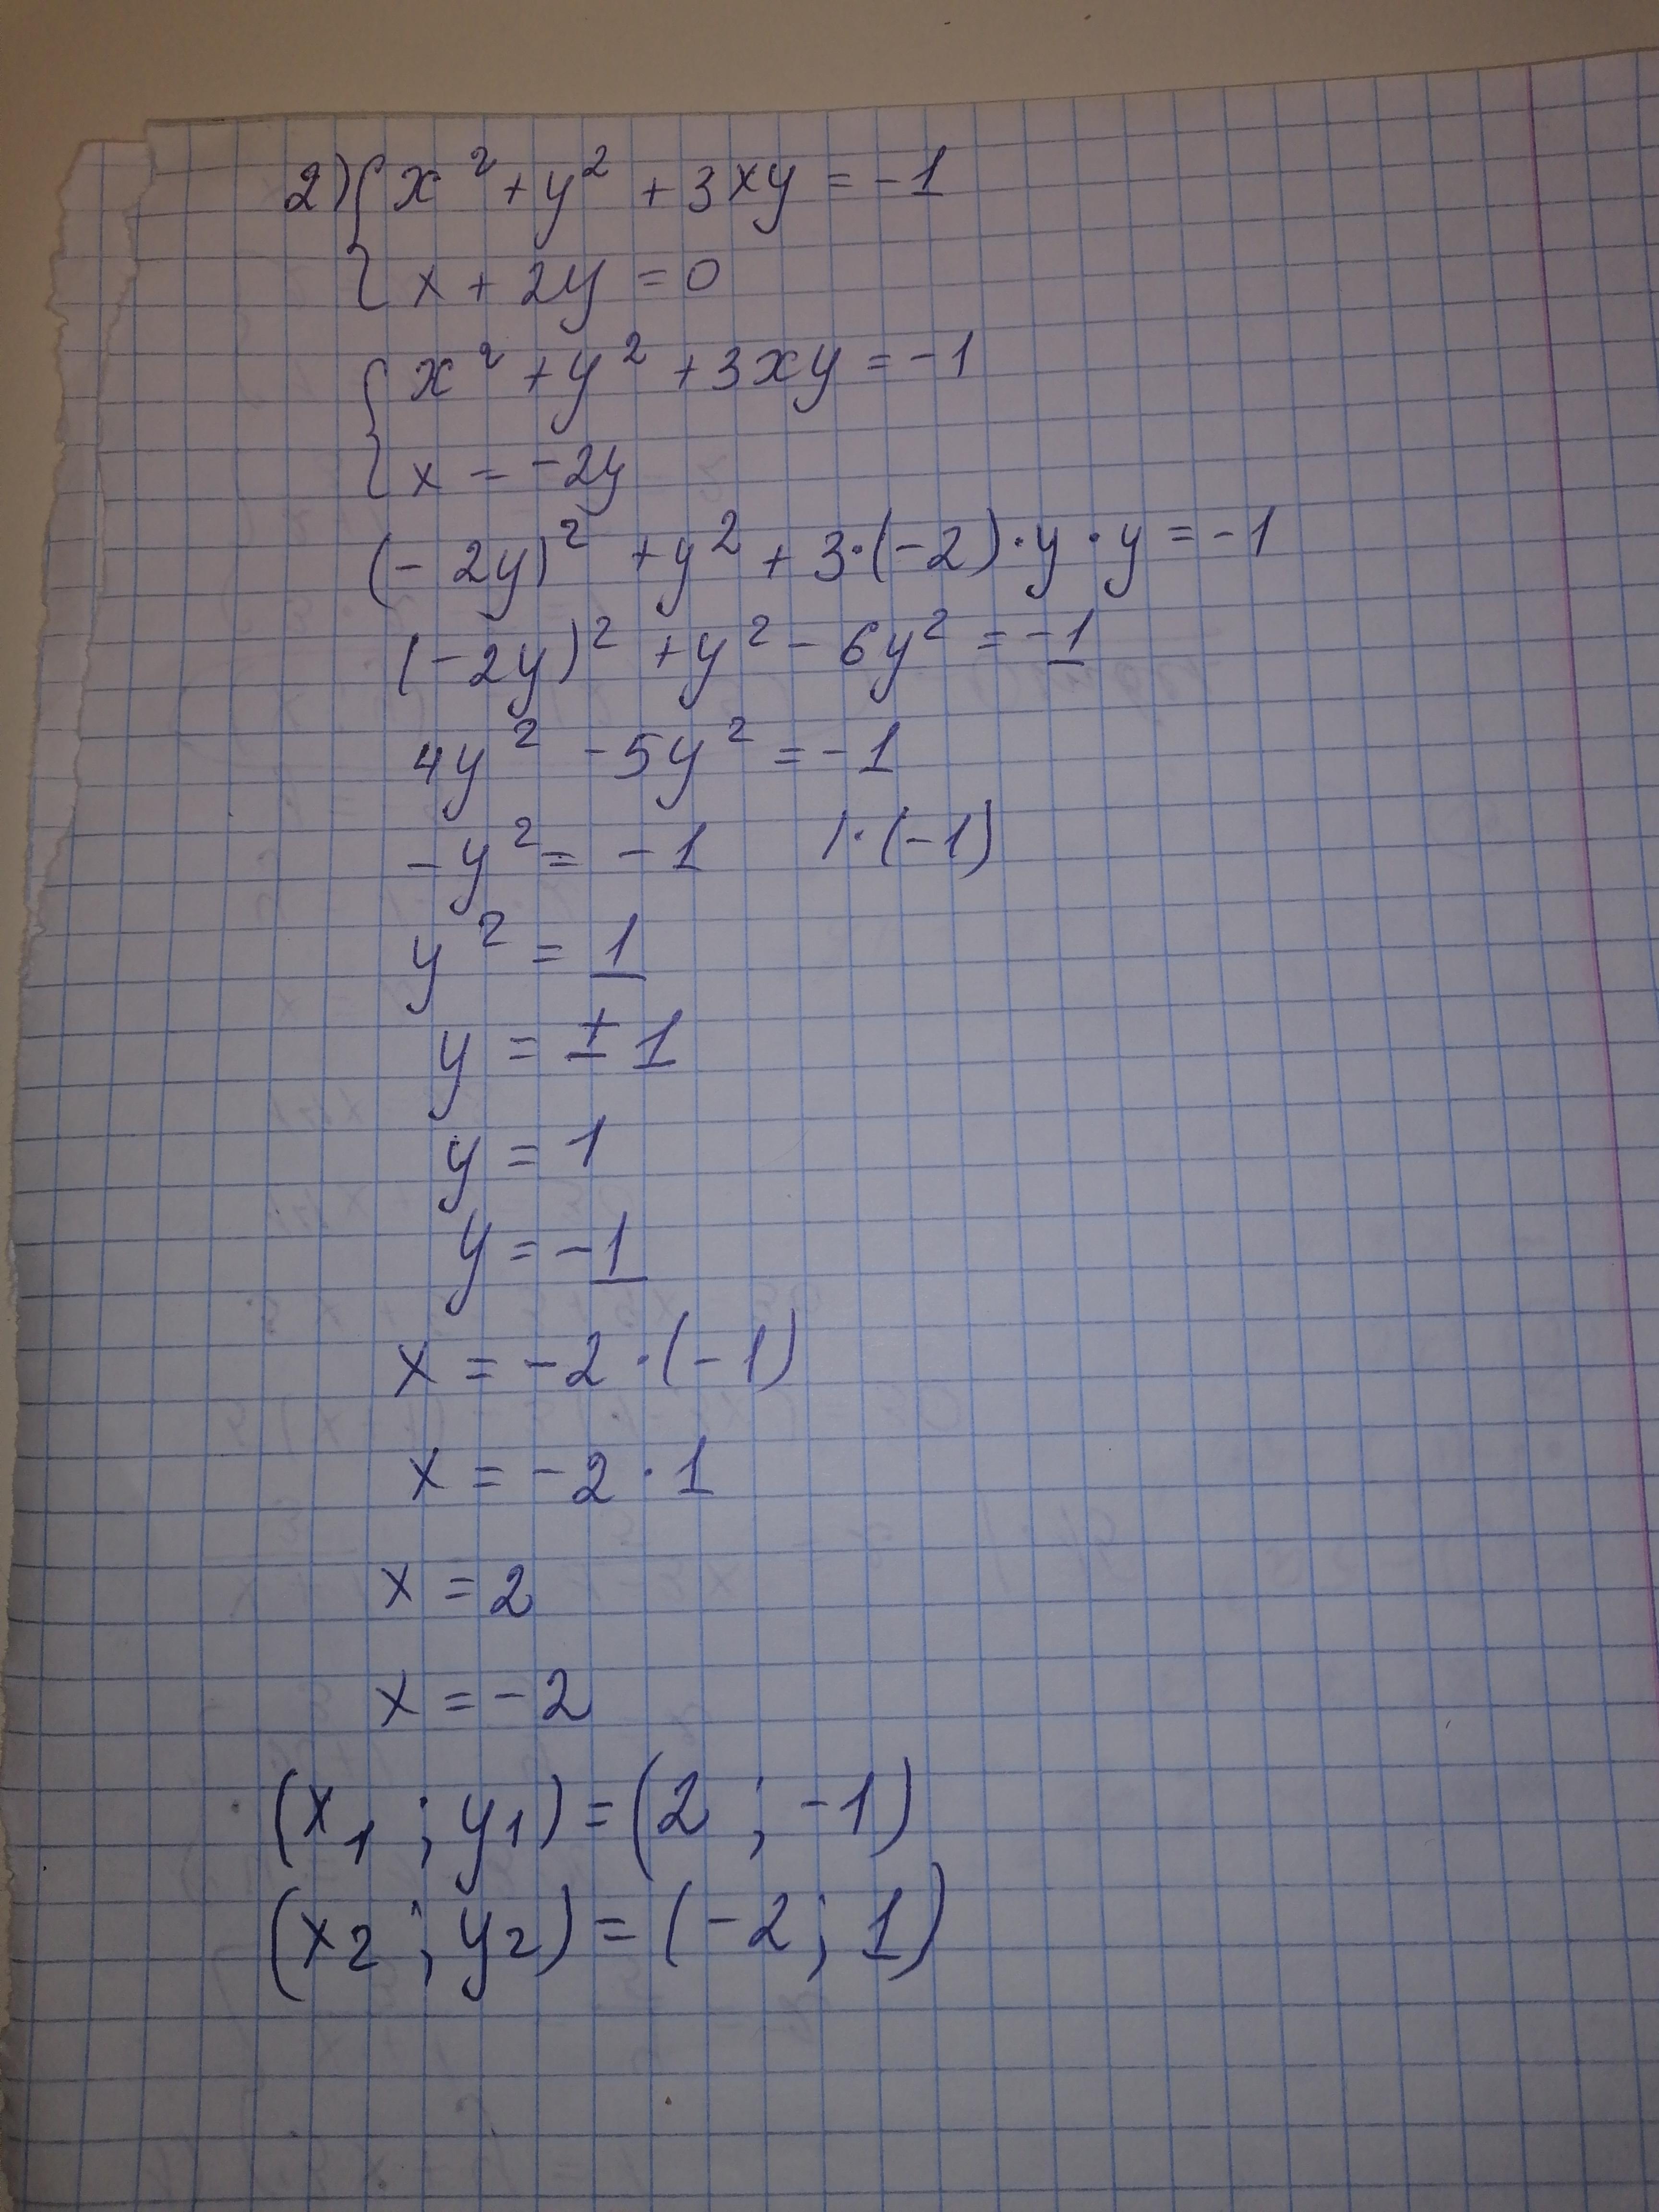 2) { x² + y² + 3xy = -1
{ x + 2y = 0
{ x² + y² + 3xy = -1
{ x = -2y
(-2y)² + y² + 3·(-2)·y·y = -1
(-2y)² + y² - 6y² = -1
4y² - 5y² = -1
-y² = -1 |·(-1)
y² = 1
y = ±1
y = 1
y = -1
x = -2·(-1)
x = -2·1
x = 2
x = -2
(x₁; y₁) = (2; -1)
(x₂; y₂) = (-2; 1)